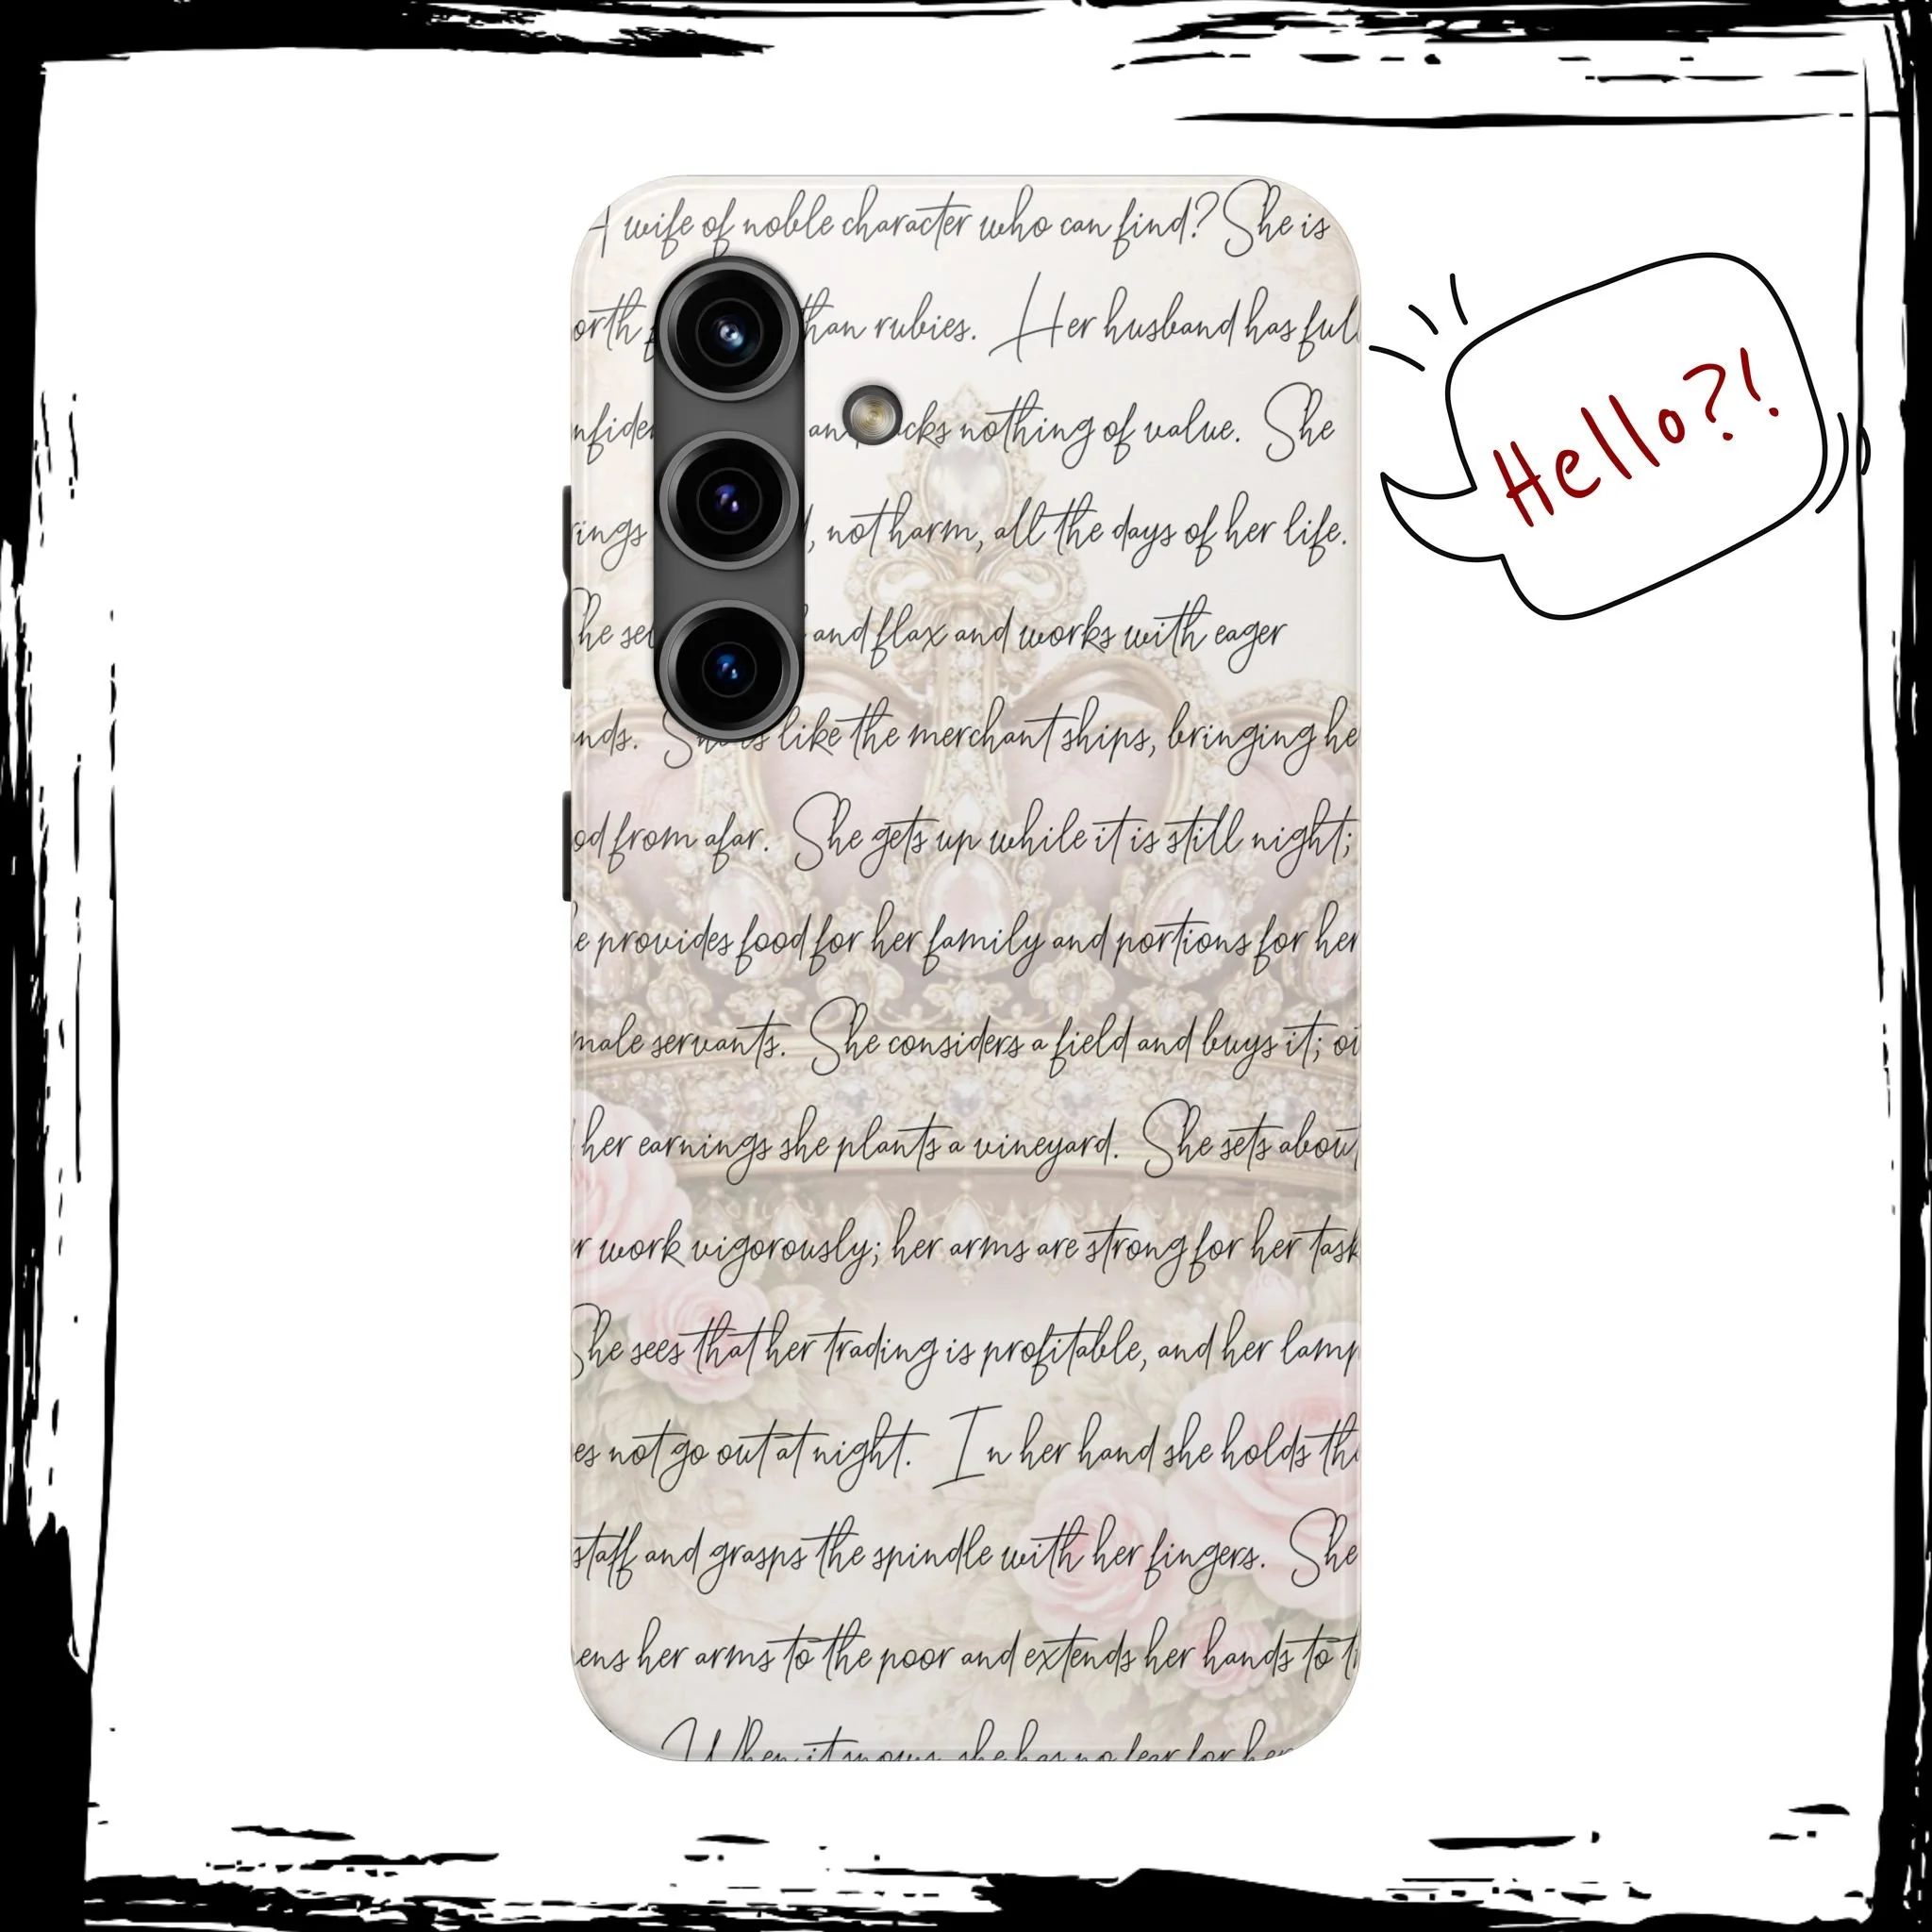 A wife of noble character who can find? She is
orth than rubies. Her husband has full
nfiden and lacks nothing of value. She
rings , not harm, all the days of her life.
She sel and flax and works with eager
nds. She is like the merchant ships, bringing he
od from afar. She gets up while it is still night;
e provides food for her family and portions for her
male servants. She considers a field and buys it; oi
her earnings she plants a vineyard. She sets about
r work vigorously; her arms are strong for her task
She sees that her trading is profitable, and her lamp
es not go out at night. In her hand she holds the
staff and grasps the spindle with her fingers. She
ens her arms to the poor and extends her hands to t
When it snows, she has no fear for her
Hello?!